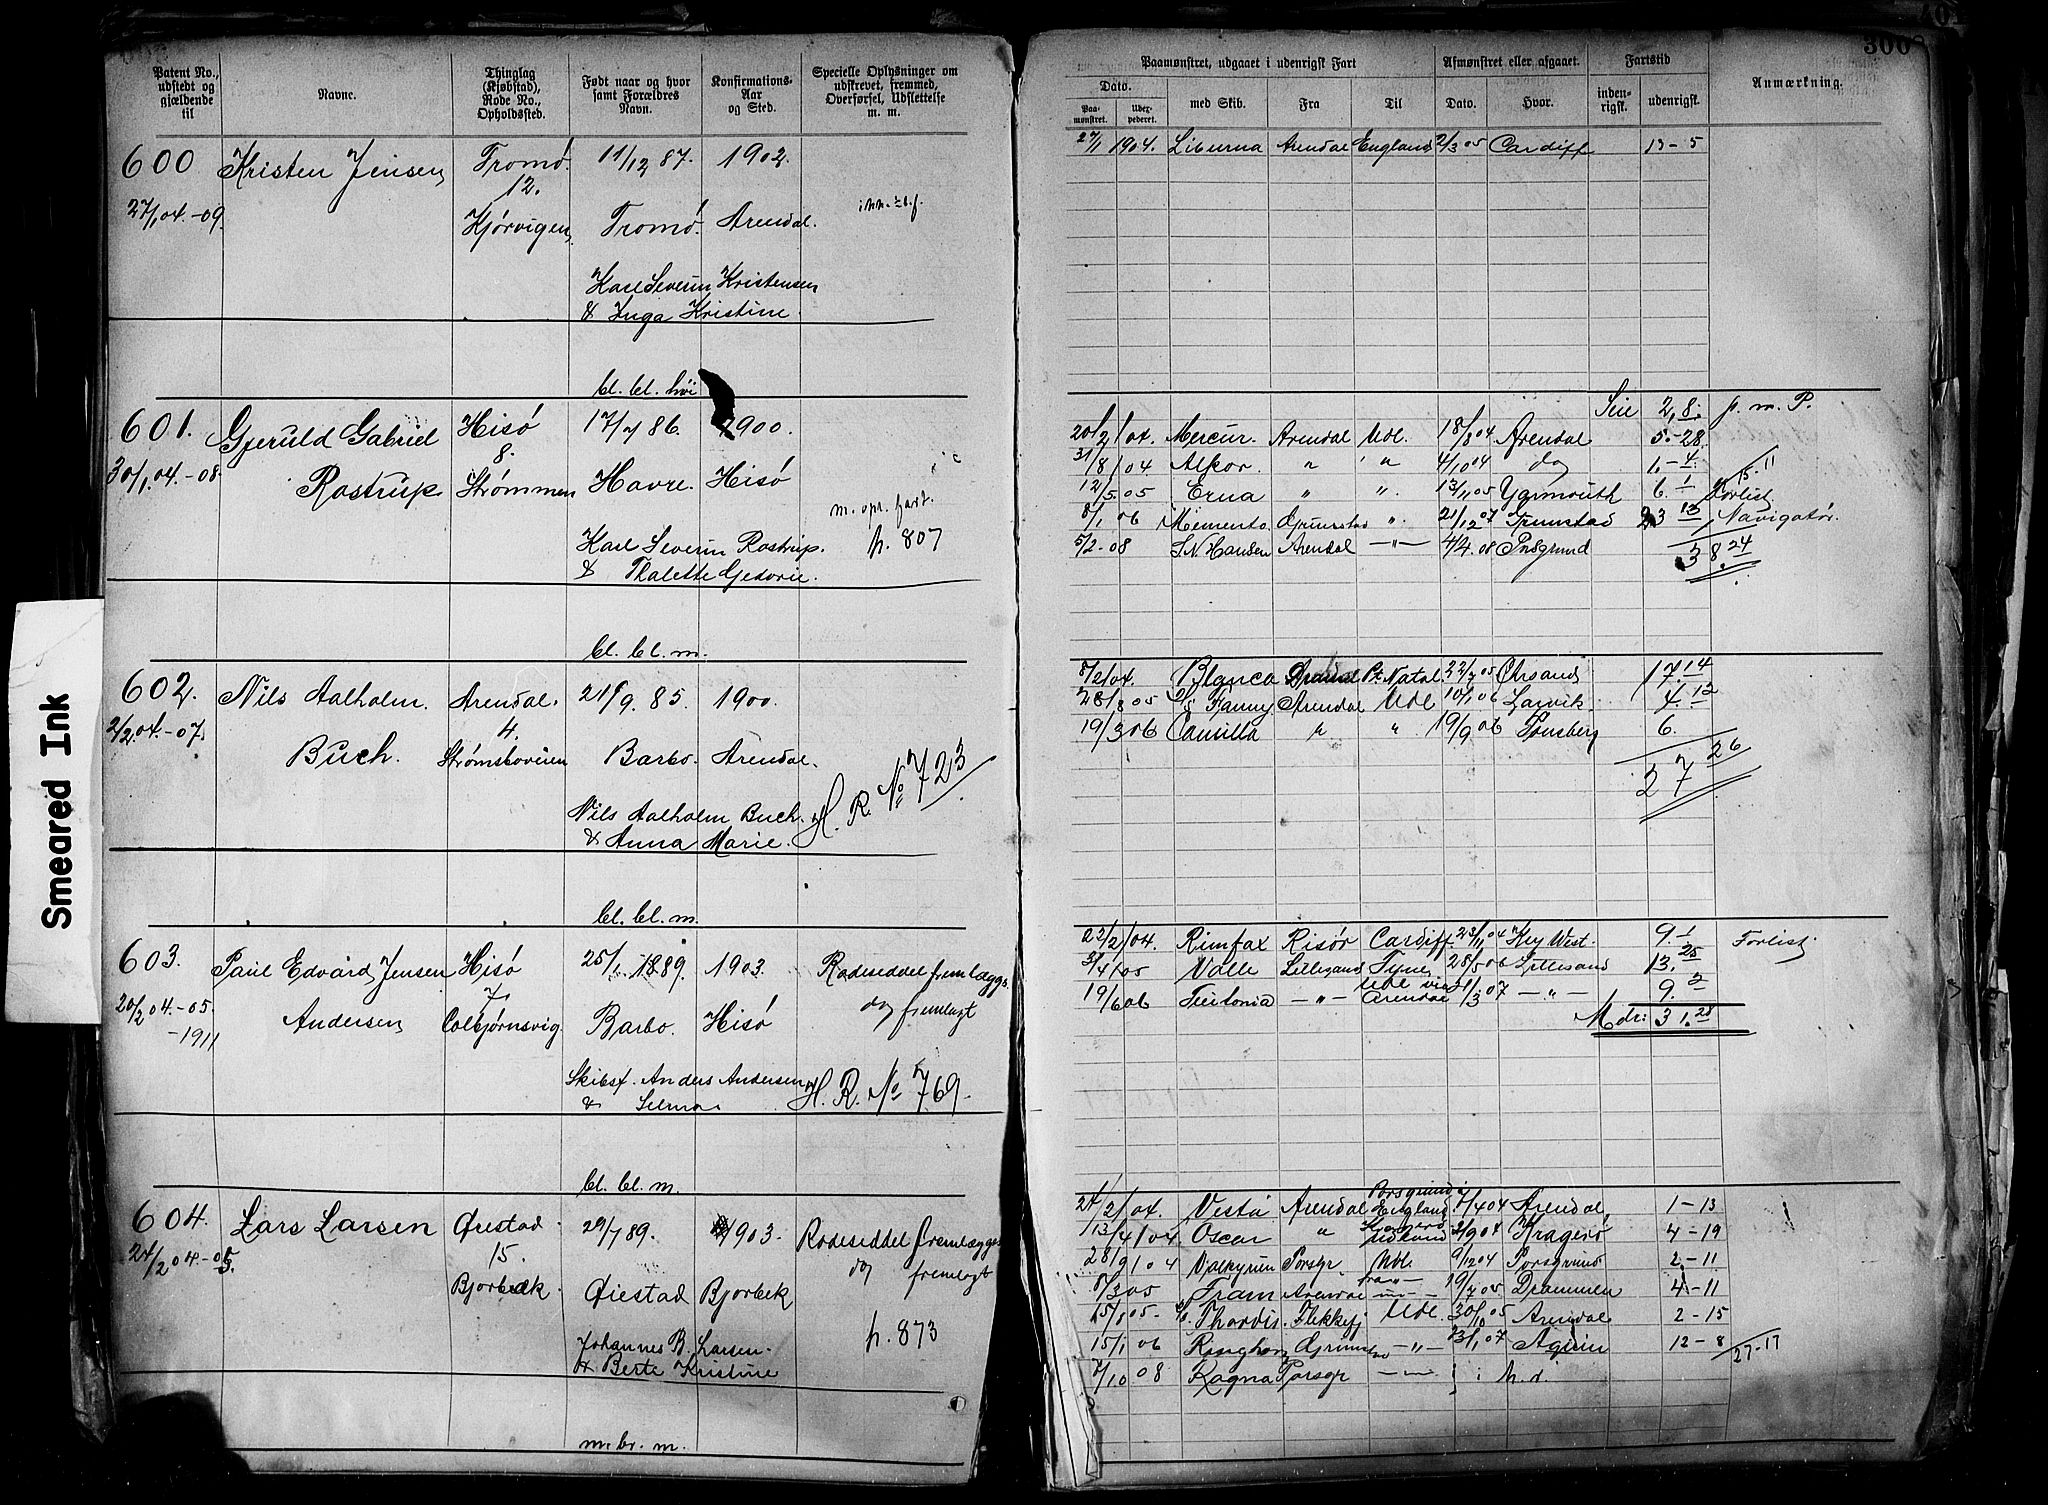 Patent No., udstedt og gjældende til
Navne.
Thinglag (Kjøbstad), Rode No., Opholdssted.
Født naar og hvor samt Forældres Navn.
Konfirmations-Aar og Sted.
Specielle Oplysninger om udskrevet, fremmed, Overførsel, Udslettelse m. m.
300
Paamønstret, udgaaet i udenrigsk Fart
Afmønstret eller afgaaet.
Fartstid
Anmærkning.
Dato.
Paa-mønstret.
med Skib.
Fra
Til
Dato.
Hvor.
inden-rigsk.
udenrigsk.
600 Kristen Jensen Tromø. 11/12 87. 1902.
12.
27/1 04.-09. Kjørvigen Tromø. Arendal.
Karl Severin Kristensen
& Inga Kristine.
bl. bl. høi
27/1 1904. Liburna Arendal England 2/3 05 Cardiff 13-5
601. Gjeruld Gabriel Hisø 17/7 86. 1900.
8.
30/1.04.-08. Rostrup Strømmen Havre. Hisø
m. opr. fart.
p. 807
Karl Severin Rostrup.
& Thalette Gedovie.
bl. bl. m.
2,8. p. m. P.
20/2/04. Mercur. Arendal Udl. 18/8 04 Arendal 5.-28
31/8/04 Alkor. " " 4/10 04 do 1.-4
12/5.05 Erna " " 13/11 05 Yarmouth 6.1 Forlist
8/1 06 Memento Grimstad " 21/12 07 Grimstad 23 13 Navigatør.
5/2-08 S N Hansen Arendal -"- 4/4.08 Prsgrund
38.24
602. Nils Aalholm Arendal. 21/9. 85. 1900.
4.
2/2.04.-07. Buch. Strømsboveien Barbo. Arendal.
H. R. No 723
Nils Aalholm Buch.
& Anna Marie.
bl. bl. m.
8/2/04. Blanca Arendal Pt. Natal 22/7 05 Chrsand 17.14
28/8 05 Fanny Arendal Udl 10/1 06 Larvik 4.12
19/3 06 Camilla " " 19/9 06 Tønsberg 6.
27 26
603. Paul Edvard Jensen Hisø 25/1 1889. 1903. Rodeseddel fremlægges.
7
20/2 04.-05. Andersen Colbjørnsvig. Barbo. Hisø do fremlagt
-1911
Skibsf. Anders Andersen
& Selma
H. R. No 769.
bl. bl. m.
22/2/04. Rimfax Risør Cardiff 23/11 04 Key West. 9.1 Forlist
3/4/05 Valle Lillesand Tyne 28/5 06 Lillesand 13.25
19/6 06 Teutonia -"- Udl via Arendal 21/3 07 -"- 9.2
Mdr: 31.28
604. Lars Larsen Øiestad 29/7 89. 1903. Rodeseddel fremlægges
15.
24/2 04.-05. Bjorbæk. Øiestad Bjorbek do fremlagt
p. 873
Johannes B. Larsen.
& Berte Kristine
m. br. m.
24/2/04. Vesta Arendal Porsgrund England 7/4 04 Arendal, 1-13
13/4/04 Oscar " 2/9 04 Kragerø 4-19
28/9/04 Valkyrien Porsgr. Udl. 9/12 04 Porsgrund 2-11
8/3 05 Fram Arendal 19/7 05 Drammen 4-11
15/8 05. Thordis. Flekkefj Udl. 30/10 05 Arendal 2-15
15/1 06 Ringhorn Grimstad -"- 23/1 07 12-8 27-17
7/10 08 Ragna Porsgr
Smeared Ink